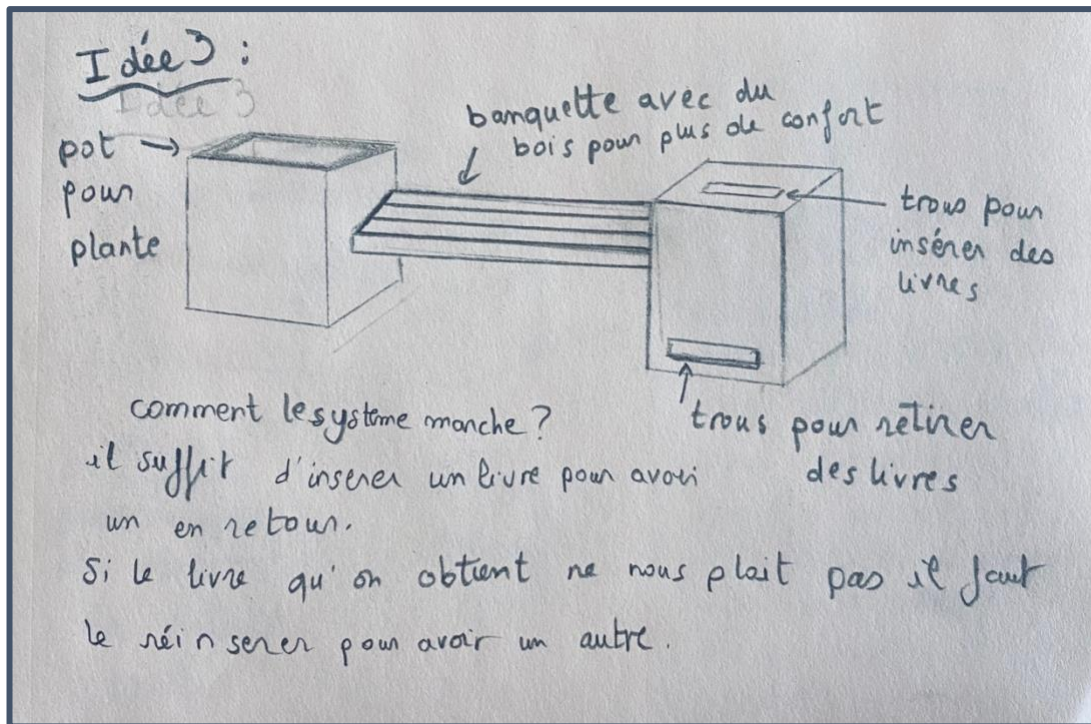 Idée 3 :
Idée 3
banquette avec du
bois pour plus de confort
pot
pour
plante
trous pour
insérer des
livres
trous pour retirer
des livres
comment le système marche ?
il suffit d'inserer un livre pour avoir
un en retour.
Si le livre qu'on obtient ne nous plait pas il faut
le réinserer pour avoir un autre.